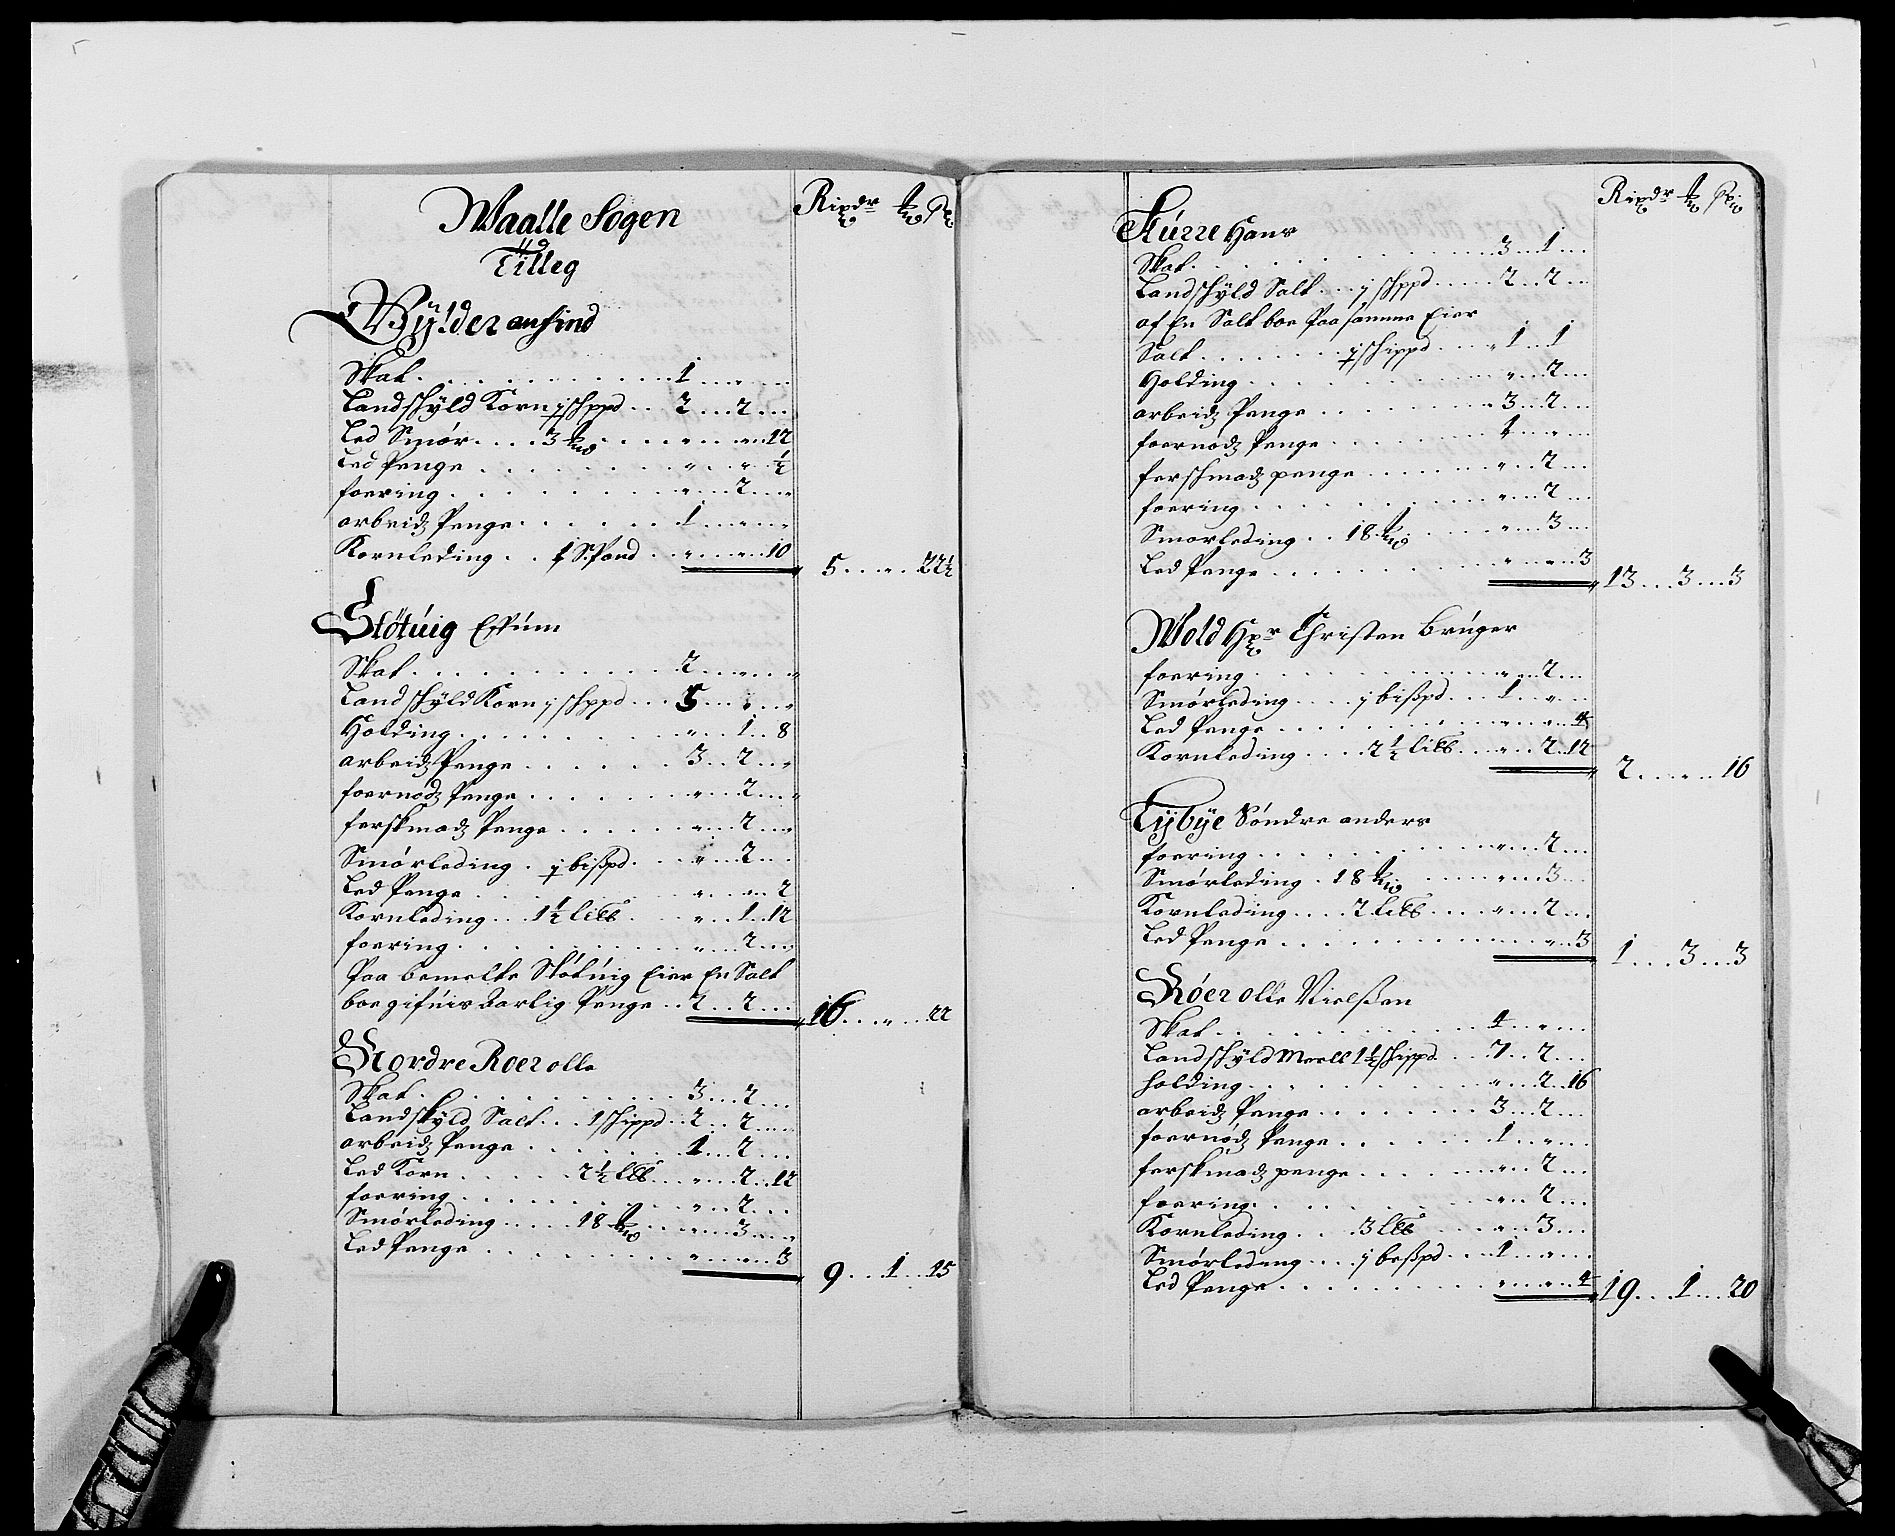 Waalle Sogen
Tilleg
Rixdr ℔ ß
Bylder anfind
Skat . . . 1 . . „ . . .
Landskyld Korn j schppd . . 2 . . . 2 . . .
Led Smør . . . . 3 ℔ . . . „ . . . „ . . 12
Led Penge . . . „ . . „ . . ½
foering . . . „ . . . 2 . . . „
arbeidz Penge . . . 1 . . . „ . . „
Kornleding . . ½ S:Pond . . „ . . . „ . . 10
5 . . . „ . . 22½
Støtuig
Skat . . . 2 . . . „ . . . „
Landskyld Korn j schppd . . . 5 . . . „ . . „
Holding . . . „ . . . 1 . . 8
arbeidz Penge . . . 3 . . 2 . . „
foernødz Penge . . . „ . . . 2 . . . „
ferskmadz Penge . . . „ . . . 2 . . . „
Smørleding . j bißpd . . . „ . . . 2 . . .
Led Penge . . . „ . . . „ . . 2
Kornleding . . . 1½ lißb . . . „ . . . 1 . . 12
foering . . . „ . . . 2 . . .
Paa bemelte Støtuig Eier En Salt
boe gifuis Aarlig Penge . . 2 . . 2 . . .
16 . . . „ . . 22
Nordre Roer olle
Skat . . . 3 . . . 2 . . .
Landskyld Salt . . . 1 schippd . . 2 . . 2 . . .
arbeidz Penge . . . 1 . . . 2 . . .
Led Korn . . . 2½ lßb . . . „ . . . 2 . . 12
foering . . . „ . . . 2 . . .
Smørleding . . . . . 18 ℔ . . . „ . . . 3 . . .
Led Penge . . . „ . . . „ . . 3
9 . . . 1 . . . 15
Rixdr ℔ ß
Kurre Hans
Skat . . . 3 . . . 1 . . .
Landskyld Salt . . . j schppd . . . . . 2 . . 2 . . .
af En Salt boe Paa samme Eier
Salt . . . ½ schippd . . . . 1 . . 1
Holding . . . „ . . . 2 . . .
arbeidz Penge . . . 3 . . 2 . . .
foernødz Penge . . . 1 . . . „ . . .
ferskmadz penge . . . „ . . . 2 . . .
foering . . . „ . . . 2 . . .
Smørleding . . 18 ℔ . . . „ . . . 3 . . .
Led Penge . . . „ . . . „ . . 3
13 . . . 3 . . . 3
Wold Hr Christen Bruger
foering . . . „ . . 2 . . .
Smørleding . . . . j bißpd . . . 1 . . . „ . . .
Led Penge . . . „ . . „ . . 4
Kornleding . . . . 2½ lißb . . . „ . . . 2 . . 12
2 . . . „ . . 16
Tÿbÿe Søndre anders
foering . . . „ . . . 2 . . .
Smørleding . 18 ℔ . . . „ . . . 3 . . .
Kornleding . . . . 2 lißb . . . „ . . 2 . . .
Led Penge . . . „ . . 3
1 . . . 3 . . . 3
Røer olle Nielßen
Skat . . . 4 . . „ . . .
Landskyld Meell 1½ schippd . . . 7 . . 2 . . .
holding . . . „ . . . 2 . . 16
arbeidz Penge . . . 3 . . . 2 . . .
foernødz Penge . . . 1 . . „ . . .
ferskmadz penge . . . „ . . 2 . . .
foering . . . „ . . 2 . . .
Kornleding . . . 3 lßb . . . „ . . 3 . . .
Smørleding . . . . j beßpd . . . 1 . . „ . . .
Led Penge . . . „ . . . „ . . 4
19 . . . 1 . . . 20